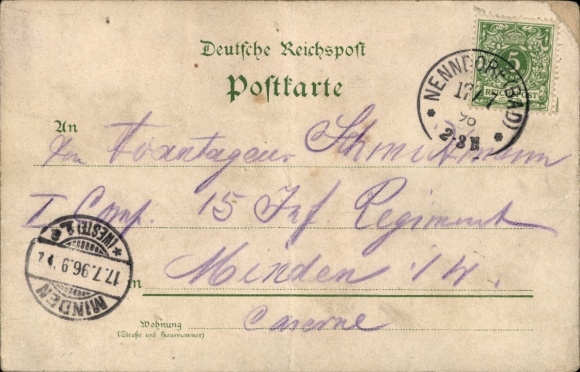 Deutsche Reichspost
Postkarte
5
REICHSPOST
* NENNDORF (BAD) *
17/7
96
2-3 N
An
den
I Comp. 15 Inf. Regiment
in Minden i/W.
Wohnung
(Straße und Hausnummer)
Caserne
MINDEN
17.7.96.9
* (WESTF) 2